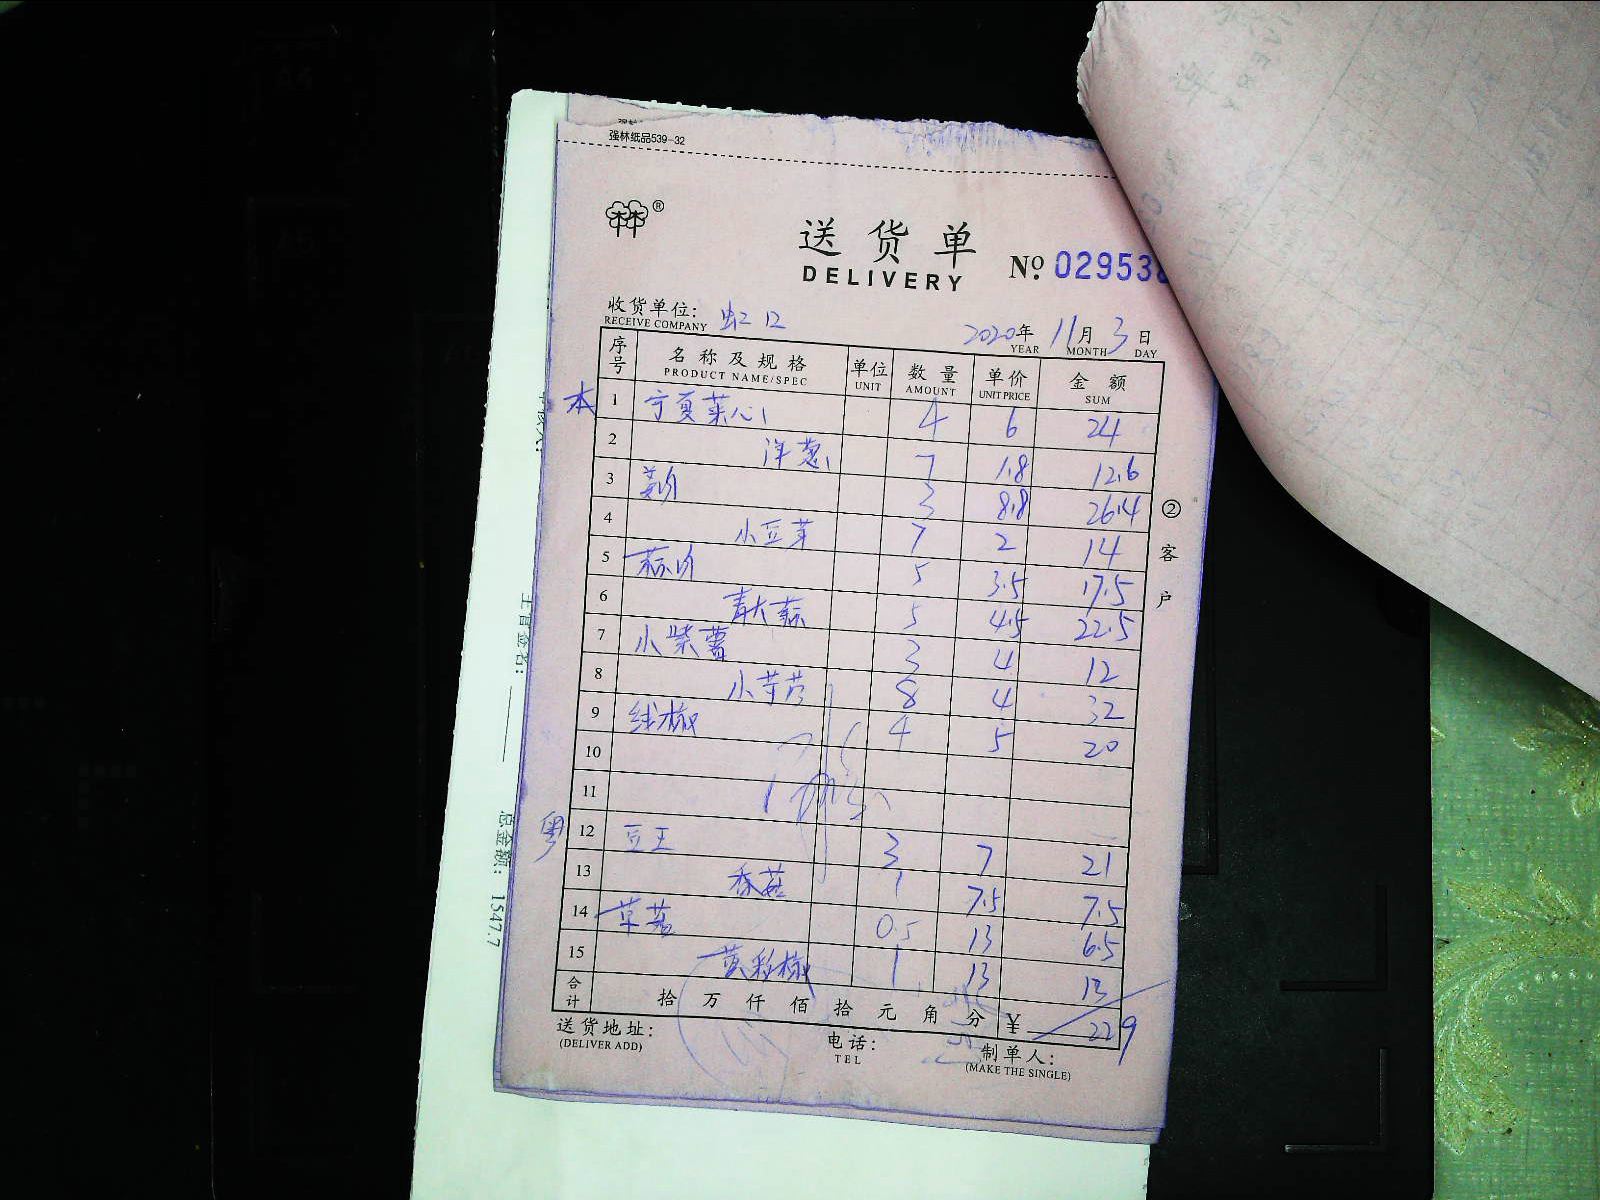 强林纸品539-32
送货单
DELIVERY
№ 029538
收货单位: 虹口
RECEIVE COMPANY
2020年 11月 3日
YEAR MONTH DAY
序号 名称及规格 单位 数量 单价 金额
PRODUCT NAME/SPEC UNIT AMOUNT UNIT PRICE SUM
本 1 宁夏菜心 4 6 24
2 洋葱 7 1.8 12.6
3 3 8.8 26.4
4 小豆芽 7 2 14
5 5 3.5 17.5
6 青大蒜 5 4.5 22.5
7 小紫薯 3 4 12
8 小芋艿 8 4 32
9 线椒 4 5 20
10
11
粤 12 豆王 3 7 21
13 香菇 1 7.5 7.5
14 草菇 0.5 13 6.5
15 黄彩椒 1 13 13
合计 拾万仟佰拾元角分 ¥ 229
送货地址: 电话: 制单人:
(DELIVER ADD) TEL (MAKE THE SINGLE)
②客户
主管签名:
总金额: 1547.7